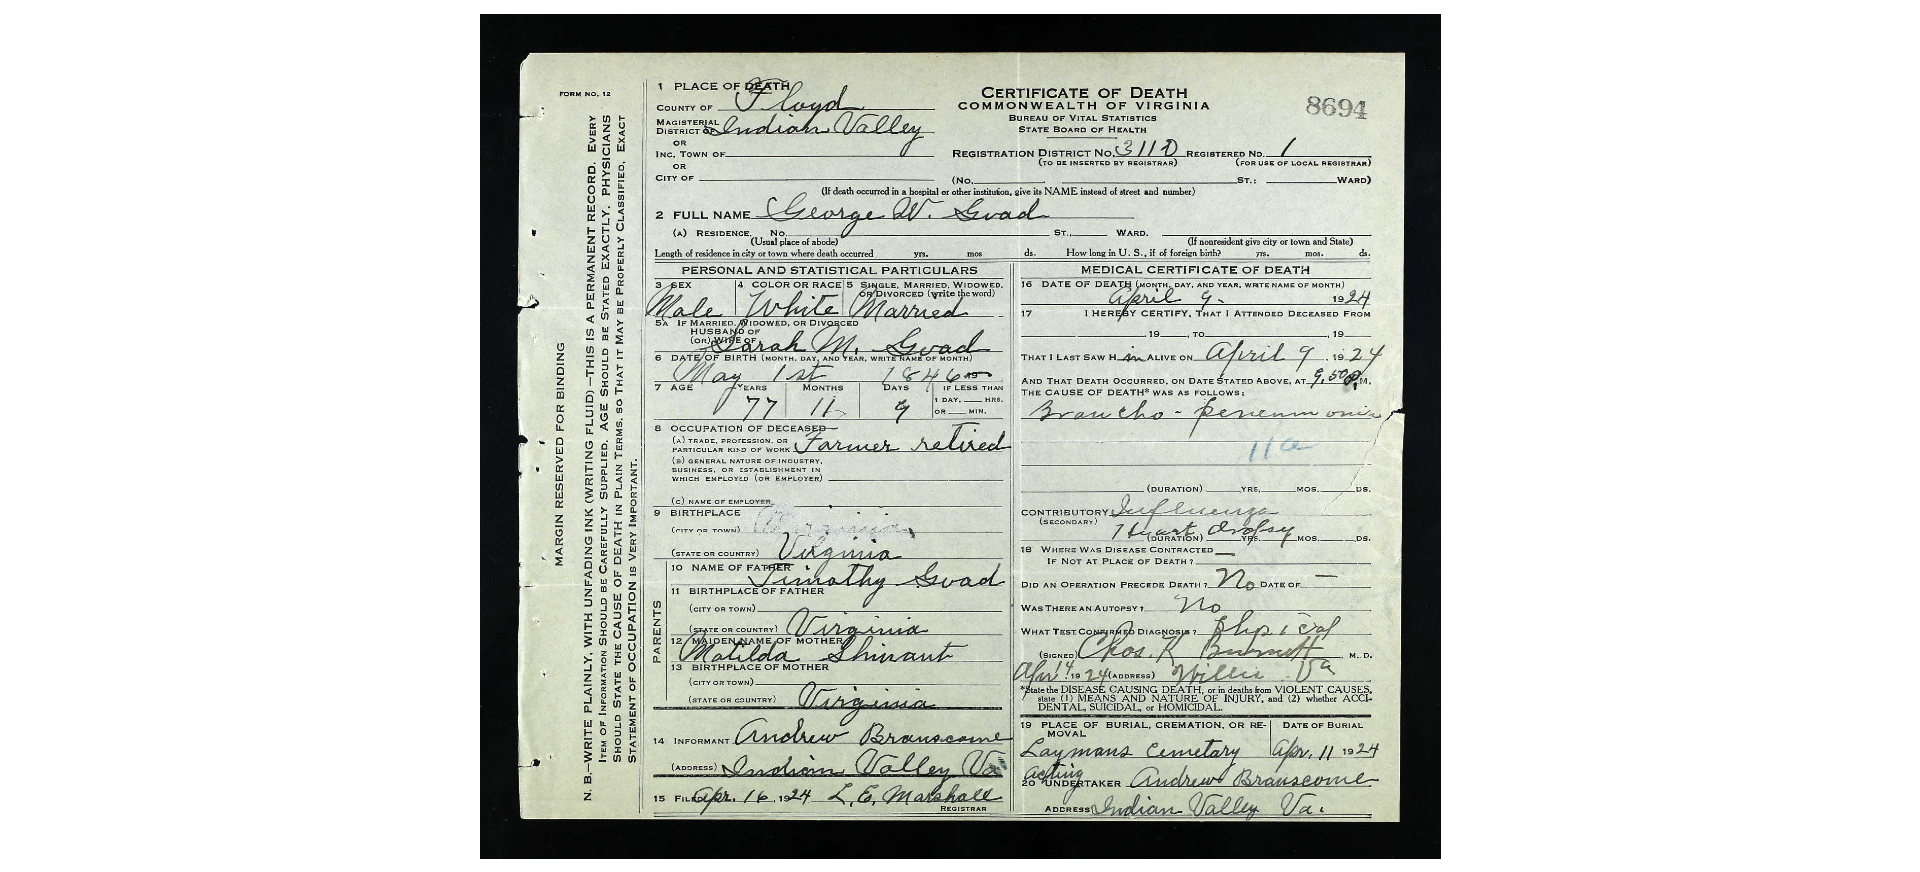 FORM NO. 12
MARGIN RESERVED FOR BINDING
N. B.—WRITE PLAINLY, WITH UNFADING INK (WRITING FLUID)—THIS IS A PERMANENT RECORD. EVERY
ITEM OF INFORMATION SHOULD BE CAREFULLY SUPPLIED. AGE SHOULD BE STATED EXACTLY. PHYSICIANS
SHOULD STATE THE CAUSE OF DEATH IN PLAIN TERMS, SO THAT IT MAY BE PROPERLY CLASSIFIED. EXACT
STATEMENT OF OCCUPATION IS VERY IMPORTANT.
1 PLACE OF DEATH
COUNTY OF Floyd
MAGISTERIAL DISTRICT OF Indian Valley
OR
INC. TOWN OF
OR
CITY OF
CERTIFICATE OF DEATH
COMMONWEALTH OF VIRGINIA
BUREAU OF VITAL STATISTICS
STATE BOARD OF HEALTH
8694
REGISTRATION DISTRICT NO. 311D REGISTERED NO. 1
(TO BE INSERTED BY REGISTRAR) (FOR USE OF LOCAL REGISTRAR)
(NO. ST.; WARD)
(If death occurred in a hospital or other institution, give its NAME instead of street and number)
2 FULL NAME George W. Goad
(A) RESIDENCE. No. ST., WARD.
(Usual place of abode) (If nonresident give city or town and State)
Length of residence in city or town where death occurred yrs. mos ds. How long in U. S., if of foreign birth? yrs. mos. ds.
PERSONAL AND STATISTICAL PARTICULARS
3 SEX 4 COLOR OR RACE 5 SINGLE, MARRIED, WIDOWED,
OR DIVORCED (write the word)
Male White Married
5A IF MARRIED, WIDOWED, OR DIVORCED
HUSBAND OF
(OR) WIFE OF Sarah M. Goad
6 DATE OF BIRTH (MONTH, DAY, AND YEAR, WRITE NAME OF MONTH)
May 1st 1846
7 AGE YEARS MONTHS DAYS IF LESS THAN
1 DAY, HRS.
77 11 9 OR MIN.
8 OCCUPATION OF DECEASED
(A) TRADE, PROFESSION, OR
PARTICULAR KIND OF WORK Farmer retired
(B) GENERAL NATURE OF INDUSTRY,
BUSINESS, OR ESTABLISHMENT IN
WHICH EMPLOYED (OR EMPLOYER)
(C) NAME OF EMPLOYER
9 BIRTHPLACE
(CITY OR TOWN) Virginia
(STATE OR COUNTRY) Virginia
PARENTS
10 NAME OF FATHER Timothy Goad
11 BIRTHPLACE OF FATHER
(CITY OR TOWN)
(STATE OR COUNTRY) Virginia
12 MAIDEN NAME OF MOTHER
Matilda
13 BIRTHPLACE OF MOTHER
(CITY OR TOWN)
(STATE OR COUNTRY) Virginia
14 INFORMANT Andrew Branscome
(ADDRESS) Indian Valley Va
15 FILED Apr. 16, 1924 L. E. Marshall
REGISTRAR
MEDICAL CERTIFICATE OF DEATH
16 DATE OF DEATH (MONTH, DAY, AND YEAR, WRITE NAME OF MONTH)
April 9. 1924
17 I HEREBY CERTIFY, THAT I ATTENDED DECEASED FROM
, 19 , TO , 19
THAT I LAST SAW H im ALIVE ON April 9, 1924
AND THAT DEATH OCCURRED, ON DATE STATED ABOVE, AT 9.50 P. M.
THE CAUSE OF DEATH* WAS AS FOLLOWS:
Broncho - penenmonia
11a
(DURATION) YRS. MOS. DS.
CONTRIBUTORY Influenza
(SECONDARY)
Heart dropsy
(DURATION) YRS. MOS. DS.
18 WHERE WAS DISEASE CONTRACTED —
IF NOT AT PLACE OF DEATH?
DID AN OPERATION PRECEDE DEATH? No DATE OF —
WAS THERE AN AUTOPSY? No
WHAT TEST CONFIRMED DIAGNOSIS? Physical
(SIGNED) Chas. K Burnett M. D.
Apr 14 1924 (ADDRESS) Willis Va
*State the DISEASE CAUSING DEATH, or in deaths from VIOLENT CAUSES,
state (1) MEANS AND NATURE OF INJURY, and (2) whether ACCI-
DENTAL, SUICIDAL, or HOMICIDAL.
19 PLACE OF BURIAL, CREMATION, OR RE-
MOVAL DATE OF BURIAL
Laymans Cemetary Apr. 11 1924
acting
20 UNDERTAKER Andrew Branscome
ADDRESS Indian Valley Va.